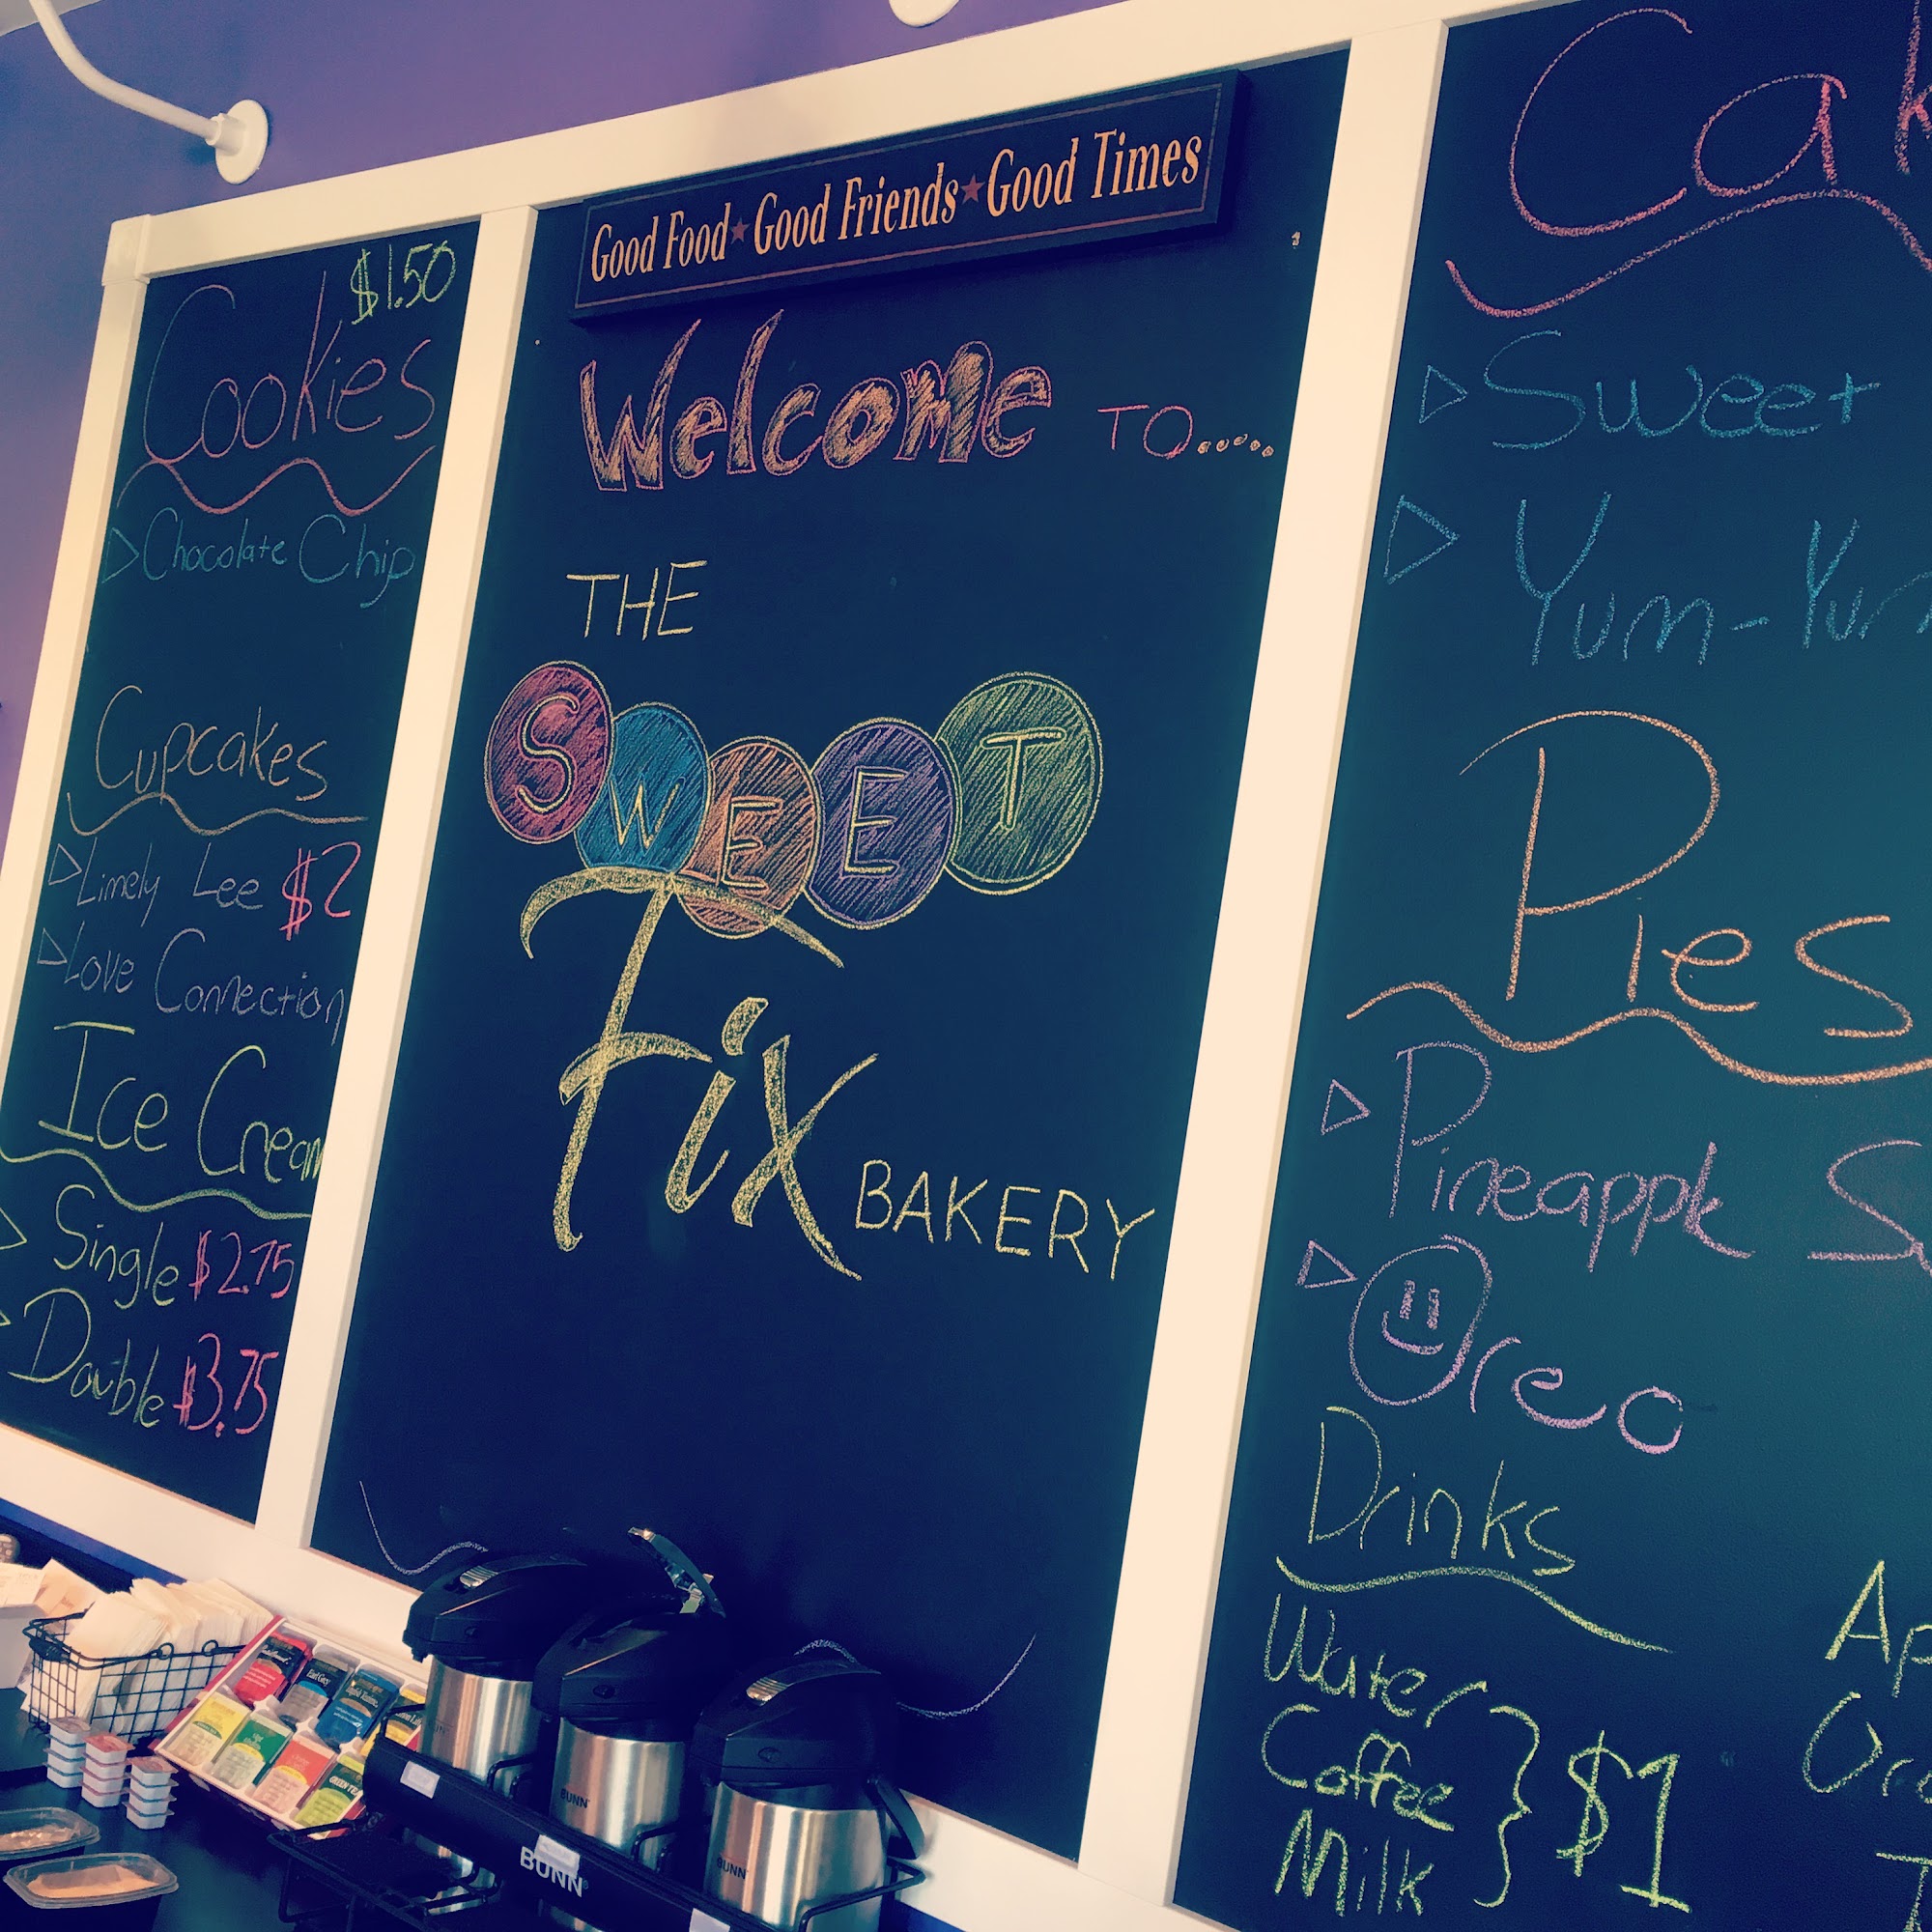 Good Food★Good Friends★Good Times
Cookies $1.50
Chocolate Chip
Cupcakes
Limely Lee $2
Love Connection
Ice Cream
Single $2.75
Double $3.75
Welcome TO......
THE
SWEET
Fix BAKERY
Sweet
Yum-Yum
Pies
Pineapple
Oreo
Drinks
Water
Coffee
Milk
$1
Earl Grey
GREEN TEA
BUNN
BUNN
BUNN